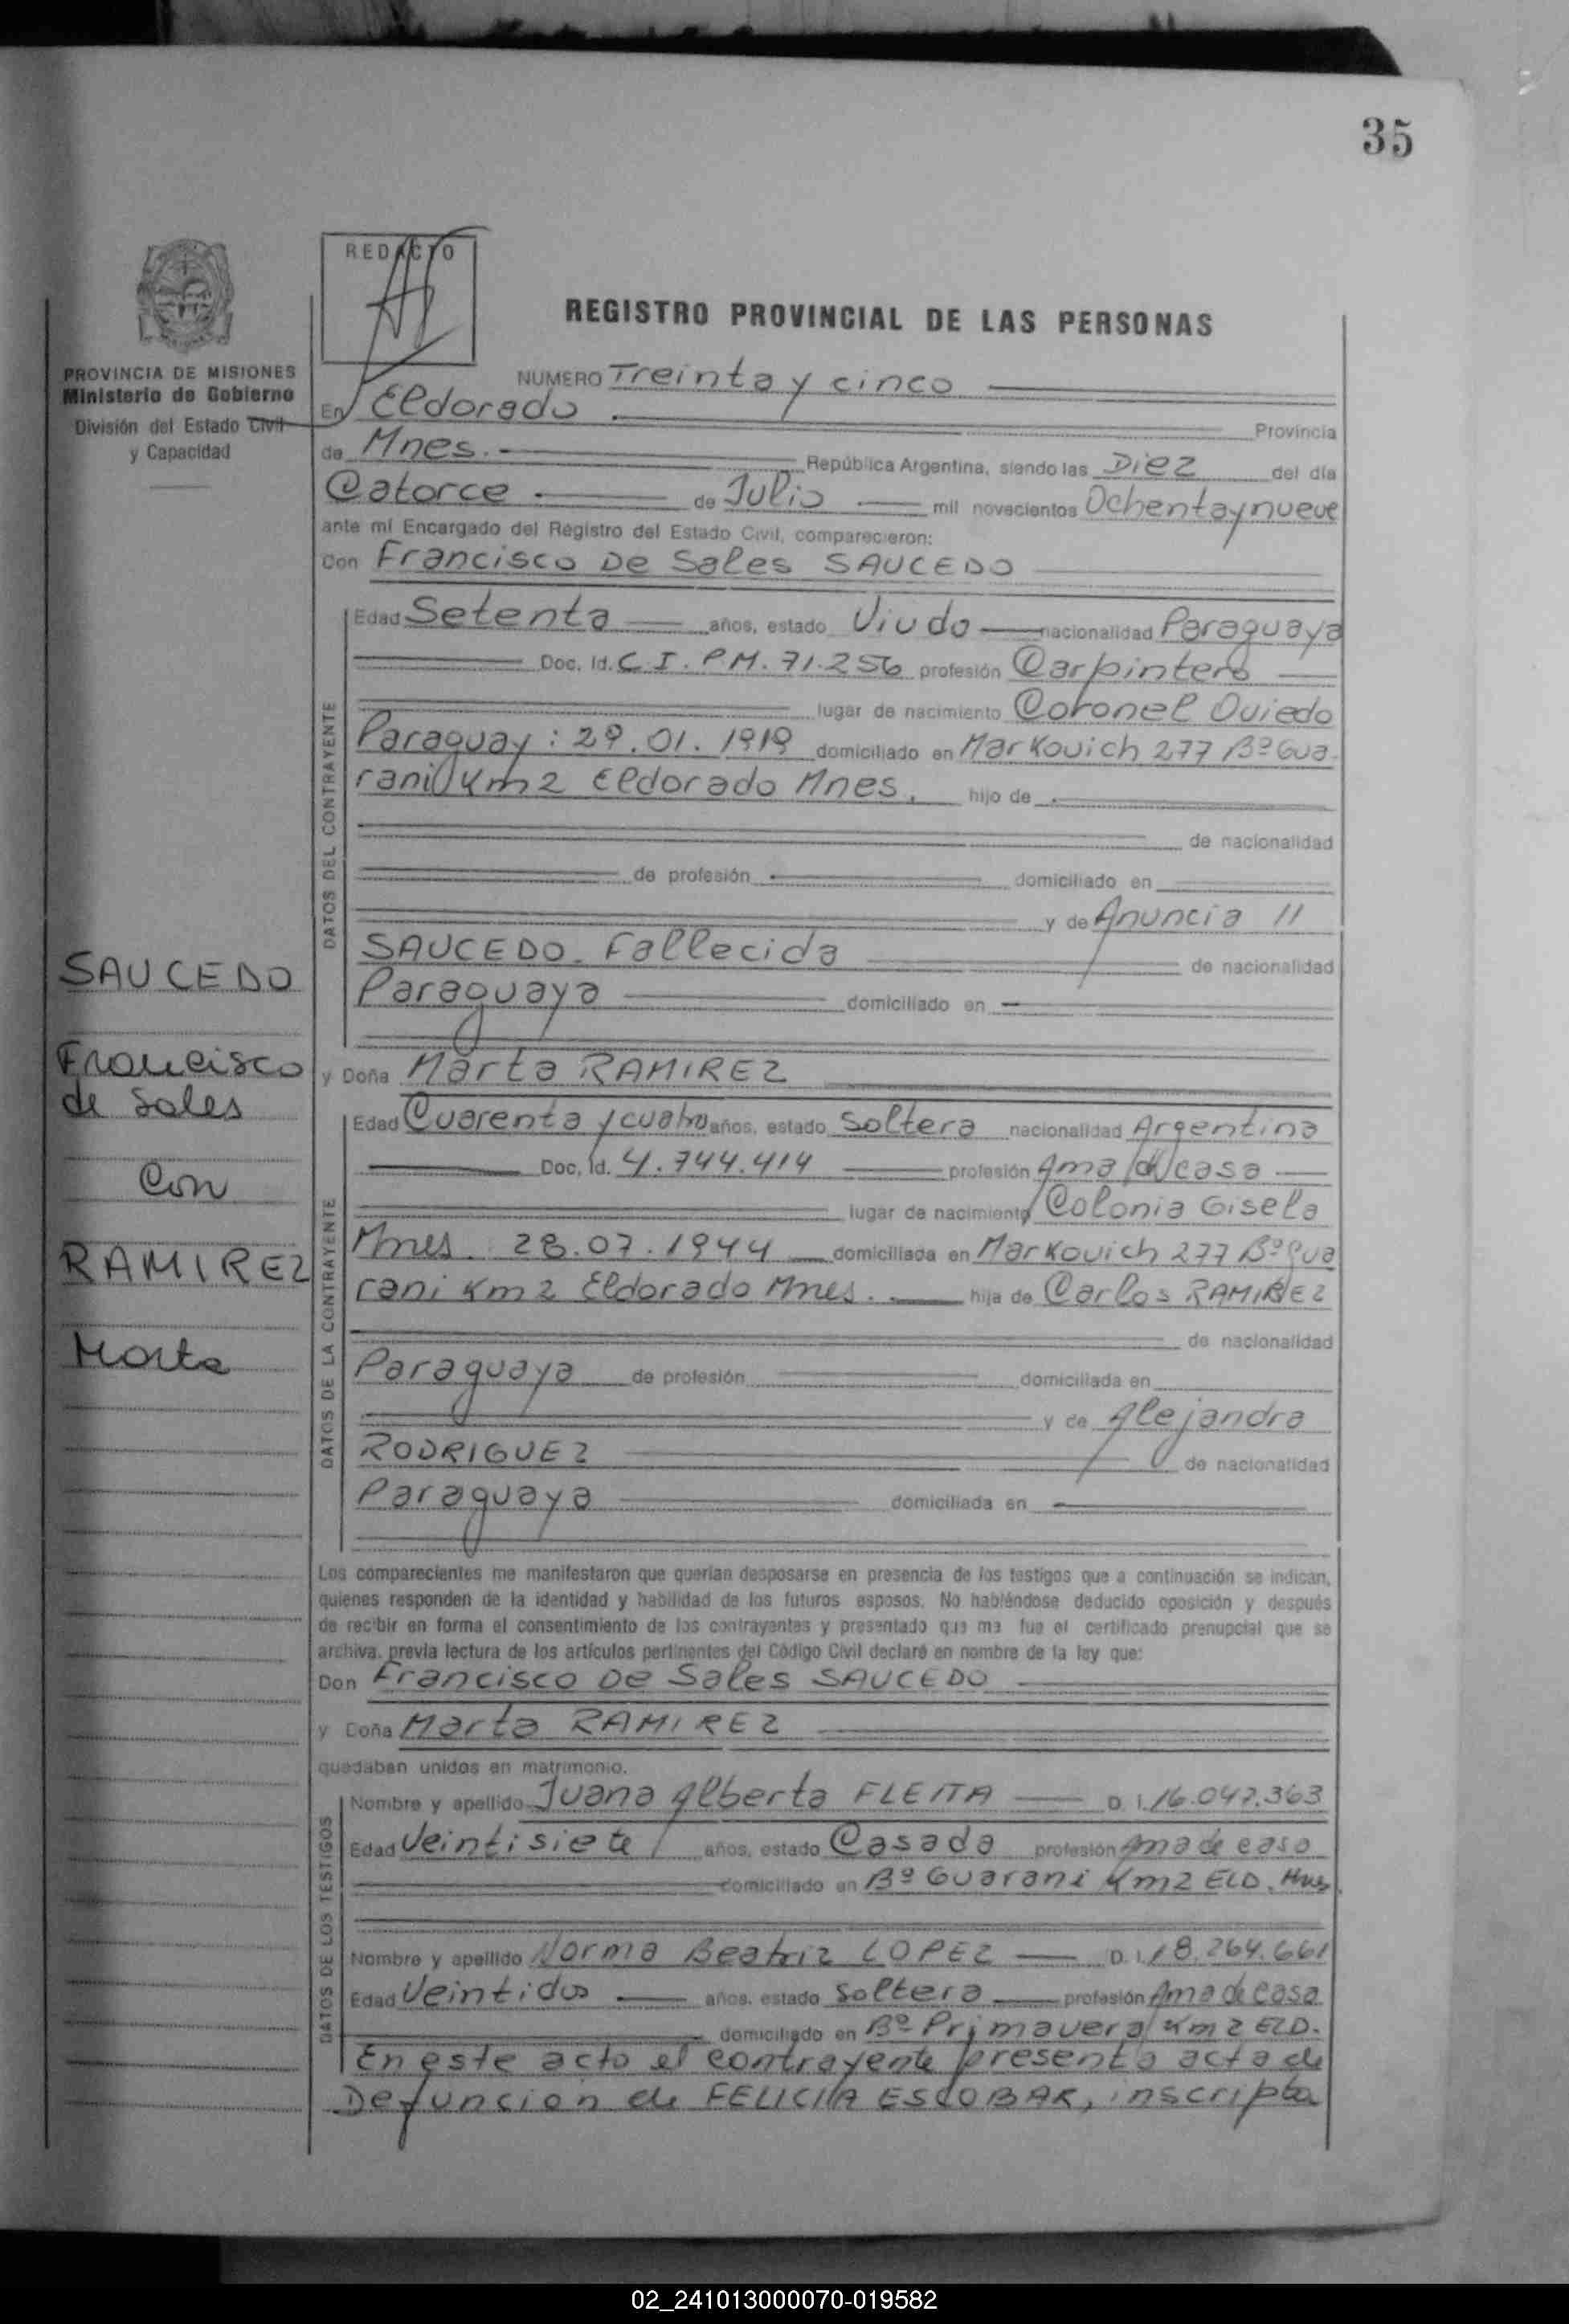 35
REDACTO
PROVINCIA DE MISIONES
Ministerio de Gobierno
División del Estado Civil
y Capacidad
REGISTRO PROVINCIAL DE LAS PERSONAS
NUMERO Treinta y cinco
En Eldorado Provincia
de Mnes. República Argentina, siendo las Diez del día
Catorce de Julio mil novecientos Ochenta y nueve
ante mí Encargado del Registro del Estado Civil, comparecieron:
Don Francisco De Sales SAUCEDO
DATOS DEL CONTRAYENTE
Edad Setenta años, estado Viudo nacionalidad Paraguaya
Doc. Id. C.I.P.M. 71.256 profesión Carpintero
lugar de nacimiento Coronel Oviedo
Paraguay: 29.01.1919 domiciliado en Markovich 277 Bº Gua-
rani Km 2 Eldorado Mnes. hijo de
de nacionalidad
de profesión domiciliado en
y de Anuncia
SAUCEDO. Fallecida de nacionalidad
Paraguaya domiciliado en
SAUCEDO
Francisco
de Sales
Con
RAMIREZ
Marta
y Doña Marta RAMIREZ
DATOS DE LA CONTRAYENTE
Edad Cuarenta y cuatro años, estado Soltera nacionalidad Argentina
Doc. Id. 4.744.414 profesión Ama de casa
lugar de nacimiento Colonia Gisela
Mnes. 28.07.1944 domiciliada en Markovich 277 Bº Gua
rani Km 2 Eldorado Mnes. hija de Carlos RAMIREZ
de nacionalidad
Paraguaya de profesión domiciliada en
y de Alejandra
RODRIGUEZ de nacionalidad
Paraguaya domiciliada en
Los comparecientes me manifestaron que querían desposarse en presencia de los testigos que a continuación se indican,
quienes responden de la identidad y habilidad de los futuros esposos. No habiéndose deducido oposición y después
de recibir en forma el consentimiento de los contrayentes y presentado que me fue el certificado prenupcial que se
archiva, previa lectura de los artículos pertinentes del Código Civil declaré en nombre de la ley que:
Don Francisco De Sales SAUCEDO
y Doña Marta RAMIREZ
quedaban unidos en matrimonio.
DATOS DE LOS TESTIGOS
Nombre y apellido Juana Alberta FLEITA D.I. 16.047.363
Edad Veintisiete años, estado Casada profesión Ama de casa
domiciliado en Bº Guarani Km 2 ELD. Mnes.
Nombre y apellido Norma Beatriz LOPEZ D.I. 18.264.661
Edad Veintidos años, estado Soltera profesión Ama de Casa
domiciliado en Bº Primavera Km 2 ELD.
En este acto el contrayente presenta acta de
Defunción de FELICIA ESCOBAR, inscripta
02_241013000070-019582